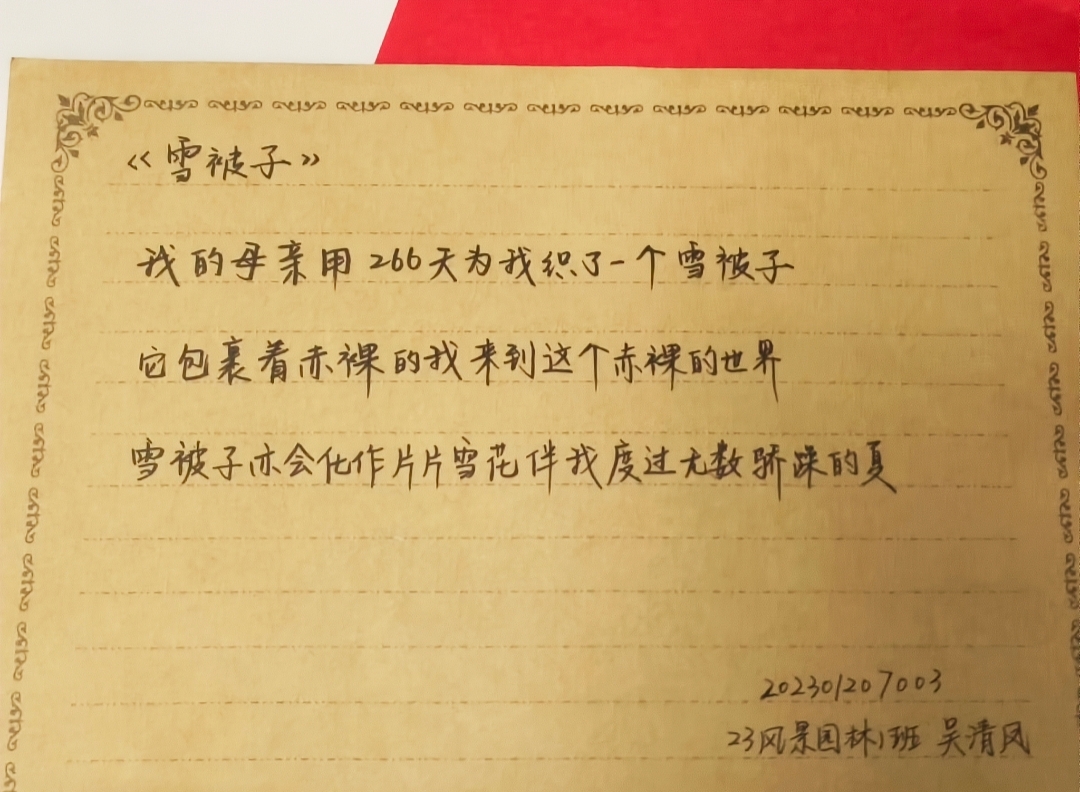 《雪被子》
我的母亲用266天为我织了一个雪被子
它包裹着赤裸的我来到这个赤裸的世界
雪被子亦会化作片片雪花伴我度过无数骄躁的夏
202301207003
23风景园林1班 吴清风